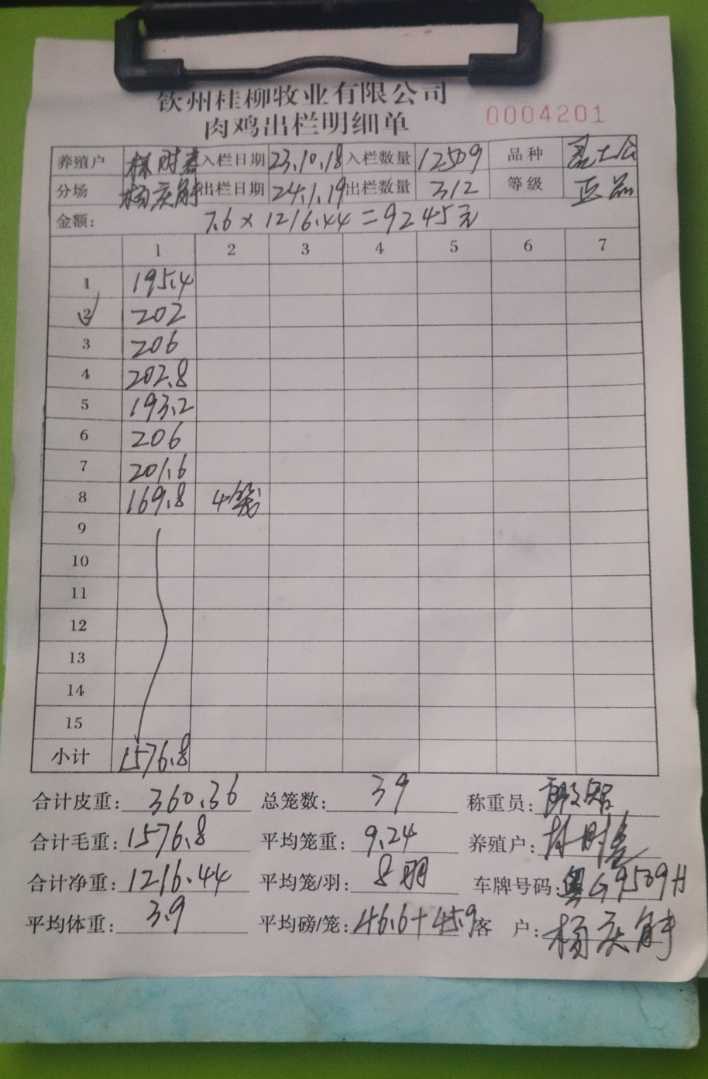 钦州桂柳牧业有限公司
肉鸡出栏明细单 0004201
养殖户 林财 入栏日期 23.10.18 入栏数量 12509 品种
分场 杨庆 出栏日期 24.1.19 出栏数量 312 等级 正品
金额: 7.6×1216.44=9245元
1 2 3 4 5 6 7
1 195.4
2 202
3 206
4 202.8
5 193.2
6 206
7 201.6
8 169.8 4笼
9
10
11
12
13
14
15
小计 1576.8
合计皮重: 360.36 总笼数: 39 称重员:
合计毛重: 1576.8 平均笼重: 9.24 养殖户: 林财
合计净重: 1216.44 平均笼/羽: 8羽 车牌号码: 粤G9509H
平均体重: 3.9 平均磅/笼: 46.6+45.9 客 户: 杨庆